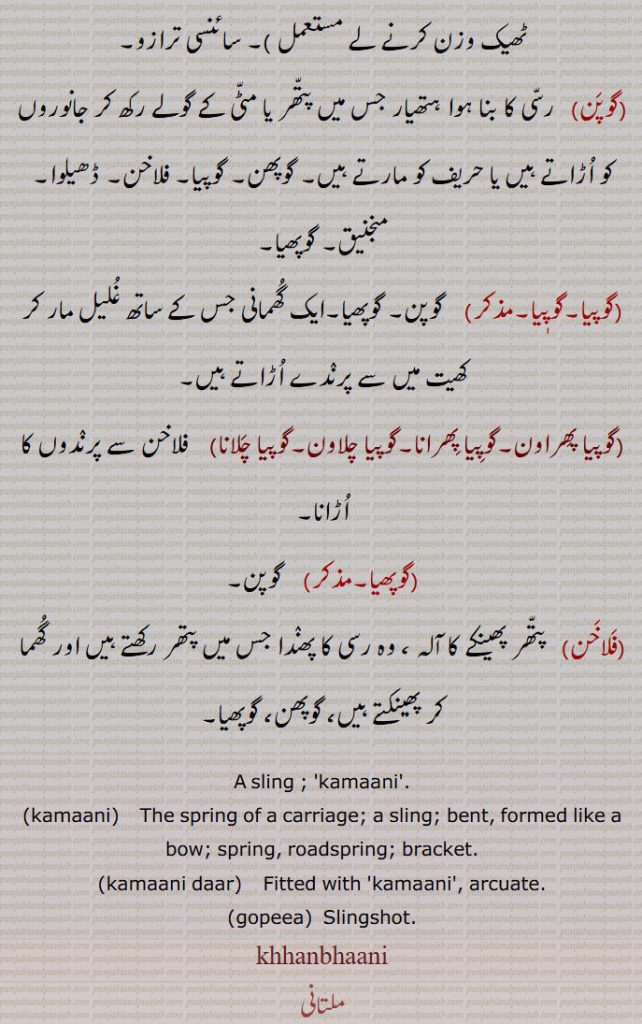 ٹھیک وزن کرنے لے مستعمل )۔ سائنسی ترازو۔
(گوپَن) رسّی کا بنا ہوا ہتھیار جس میں پتّھر یا مٹّی کے گولے رکھ کر جانوروں
کو اُڑاتے ہیں یا حریف کو مارتے ہیں۔ گوپھن۔ گوپیا۔ فلاخن۔ ڈھیلوا۔
منجنیق۔ گوپھیا۔
(گوپیا۔گوپِیا۔مذکر) گوپن۔ گوپھیا۔ایک گُھمانی جس کے ساتھ غُلیل مار کر
کھیت میں سے پرنْدے اُڑاتے ہیں۔
(گوپیا پھراون۔گوپِیا پِھرانا۔گوپیا چلاون۔گوپیا چَلانا) فلاخن سے پرنْدوں کا
اُڑانا۔
(گوپھیا۔مذکر) گوپن۔
(فَلاخَن) پتّھر پھینکے کا آلہ ، وہ رسی کا پھنْدا جس میں پتھر رکھتے ہیں اور گُھما
کر پھینکتے ہیں، گوپھن، گوپھیا۔
A sling ; 'kamaani'.
(kamaani) The spring of a carriage; a sling; bent, formed like a
bow; spring, roadspring; bracket.
(kamaani daar) Fitted with 'kamaani', arcuate.
(gopeea) Slingshot.
khhanbhaani
ملتانی